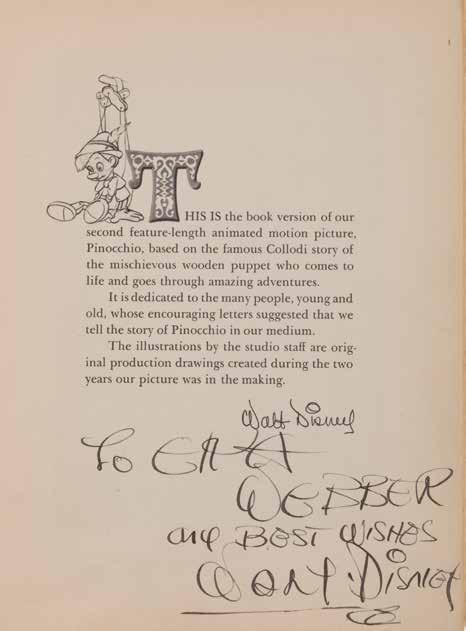 THIS IS the book version of our
second feature-length animated motion picture,
Pinocchio, based on the famous Collodi story of
the mischievous wooden puppet who comes to
life and goes through amazing adventures.
It is dedicated to the many people, young and
old, whose encouraging letters suggested that we
tell the story of Pinocchio in our medium.
The illustrations by the studio staff are orig-
inal production drawings created during the two
years our picture was in the making.
Walt Disney
To
WEBBER
BEST WISHES
WALT DISNEY